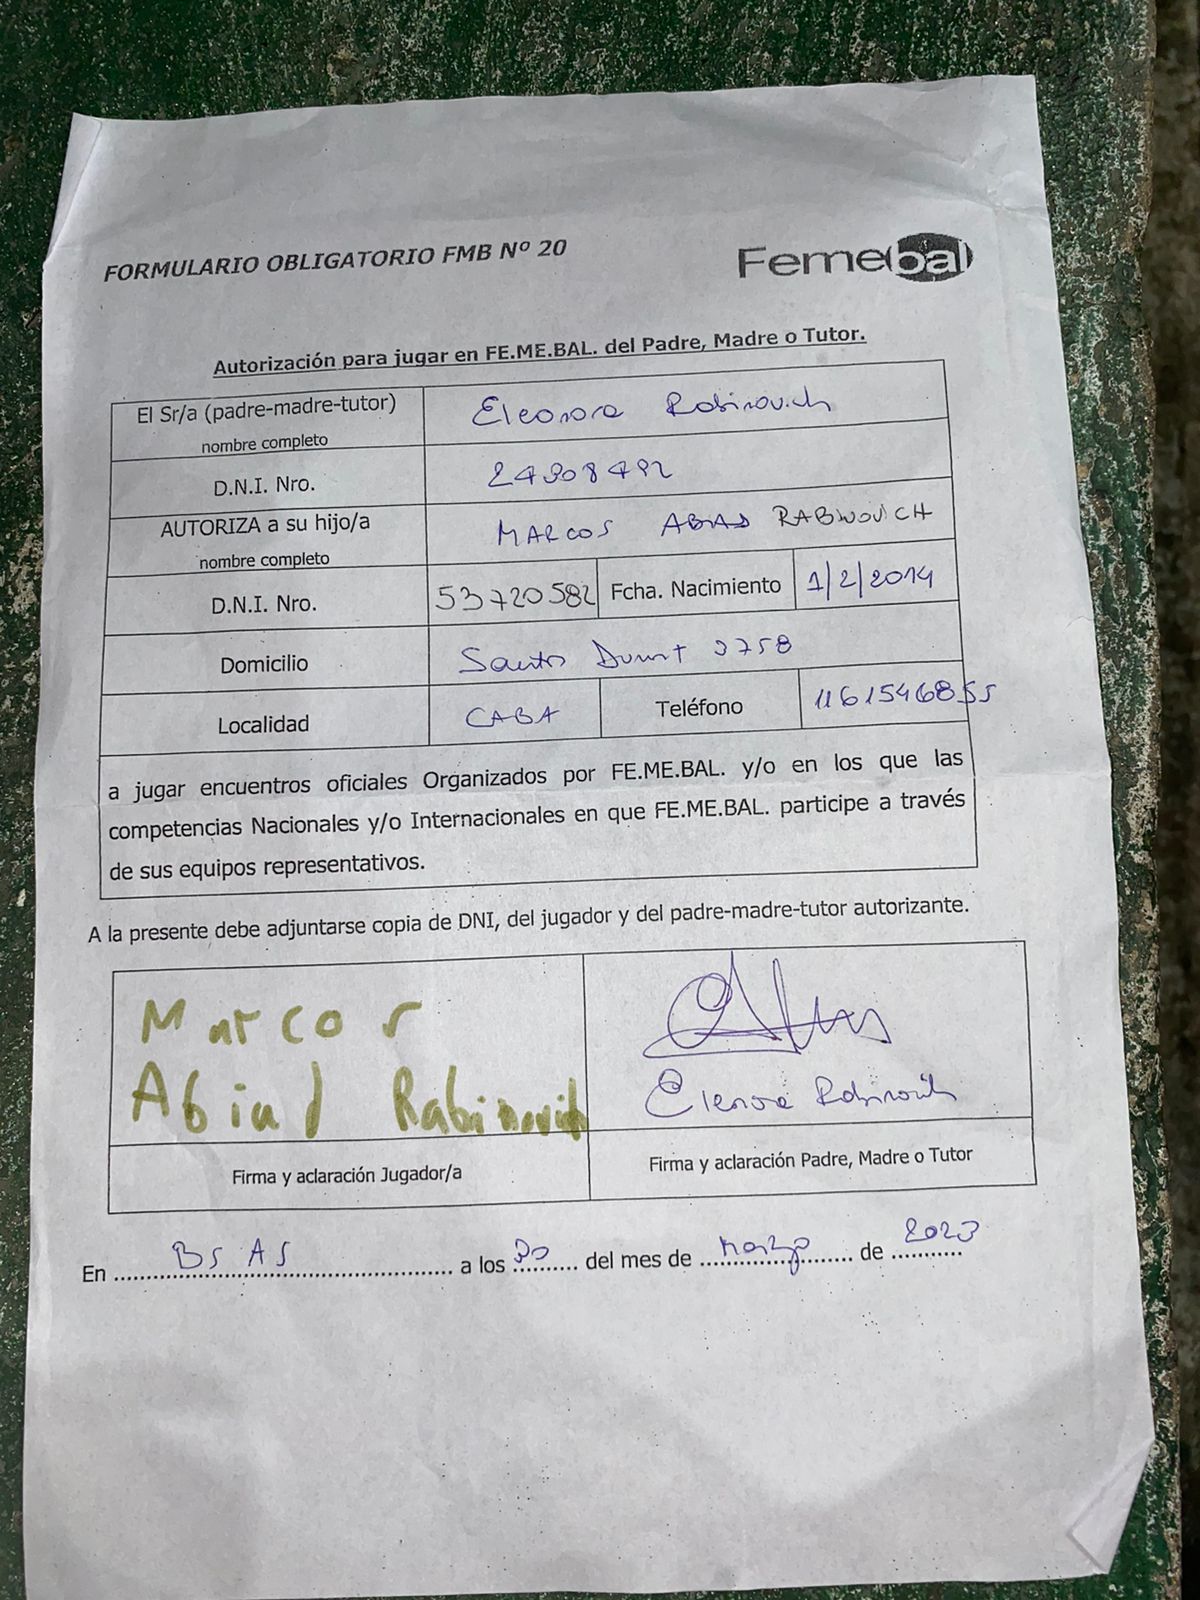 FORMULARIO OBLIGATORIO FMB Nº 20
Femebal
Autorización para jugar en FE.ME.BAL. del Padre, Madre o Tutor.
El Sr/a (padre-madre-tutor) nombre completo Eleonora Rabinovich
D.N.I. Nro. 24308492
AUTORIZA a su hijo/a nombre completo MARCOS ABIAD RABINOVICH
D.N.I. Nro. 53720582 Fcha. Nacimiento 1/2/2014
Domicilio Santos Dumont 3758
Localidad CABA Teléfono 1161546855
a jugar encuentros oficiales Organizados por FE.ME.BAL. y/o en los que las
competencias Nacionales y/o Internacionales en que FE.ME.BAL. participe a través
de sus equipos representativos.
A la presente debe adjuntarse copia de DNI, del jugador y del padre-madre-tutor autorizante.
Marcos
Abiad Rabinovich
Eleonora Rabinovich
Firma y aclaración Jugador/a
Firma y aclaración Padre, Madre o Tutor
En BS AS a los 30 del mes de marzo de 2023